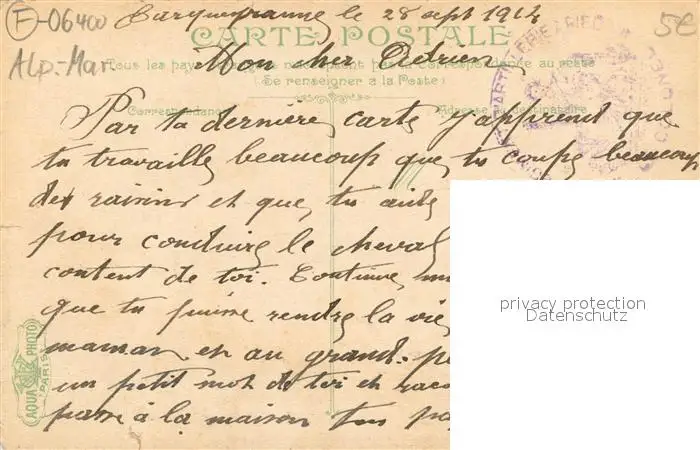 F-06400
Alp.-Mar.
5€
le 28 sept 1914
CARTE POSTALE
Mon cher Adrien
Tous les pays pas de correspondance au recto
(Se renseigner à la Poste)
Correspondance Adresse du destinataire
Par ta dernière carte j'apprend que
tu travaille beaucoup que tu coupe beaucoup
des raisins et que tu aide
pour conduire le cheval
content de toi. Continue
que tu puisse rendre la vie
maman et au grand-
un petit mot de toi et
passe à la maison ton
AQUA PHOTO
PARIS
privacy protection
Datenschutz